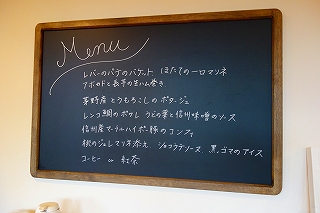 Menu
レバーのパテのバケット ほたての一口マリネ
アボカドと長芋の生ハム巻き
茅野産とうもろこしのポタージュ
レンコ鯛のポワレ うどの葉と信州味噌のソース
信州産マールハイボー豚のコンフィ
桃のジュレマリネ添え ショコラテソース 黒ゴマのアイス
コーヒー or 紅茶